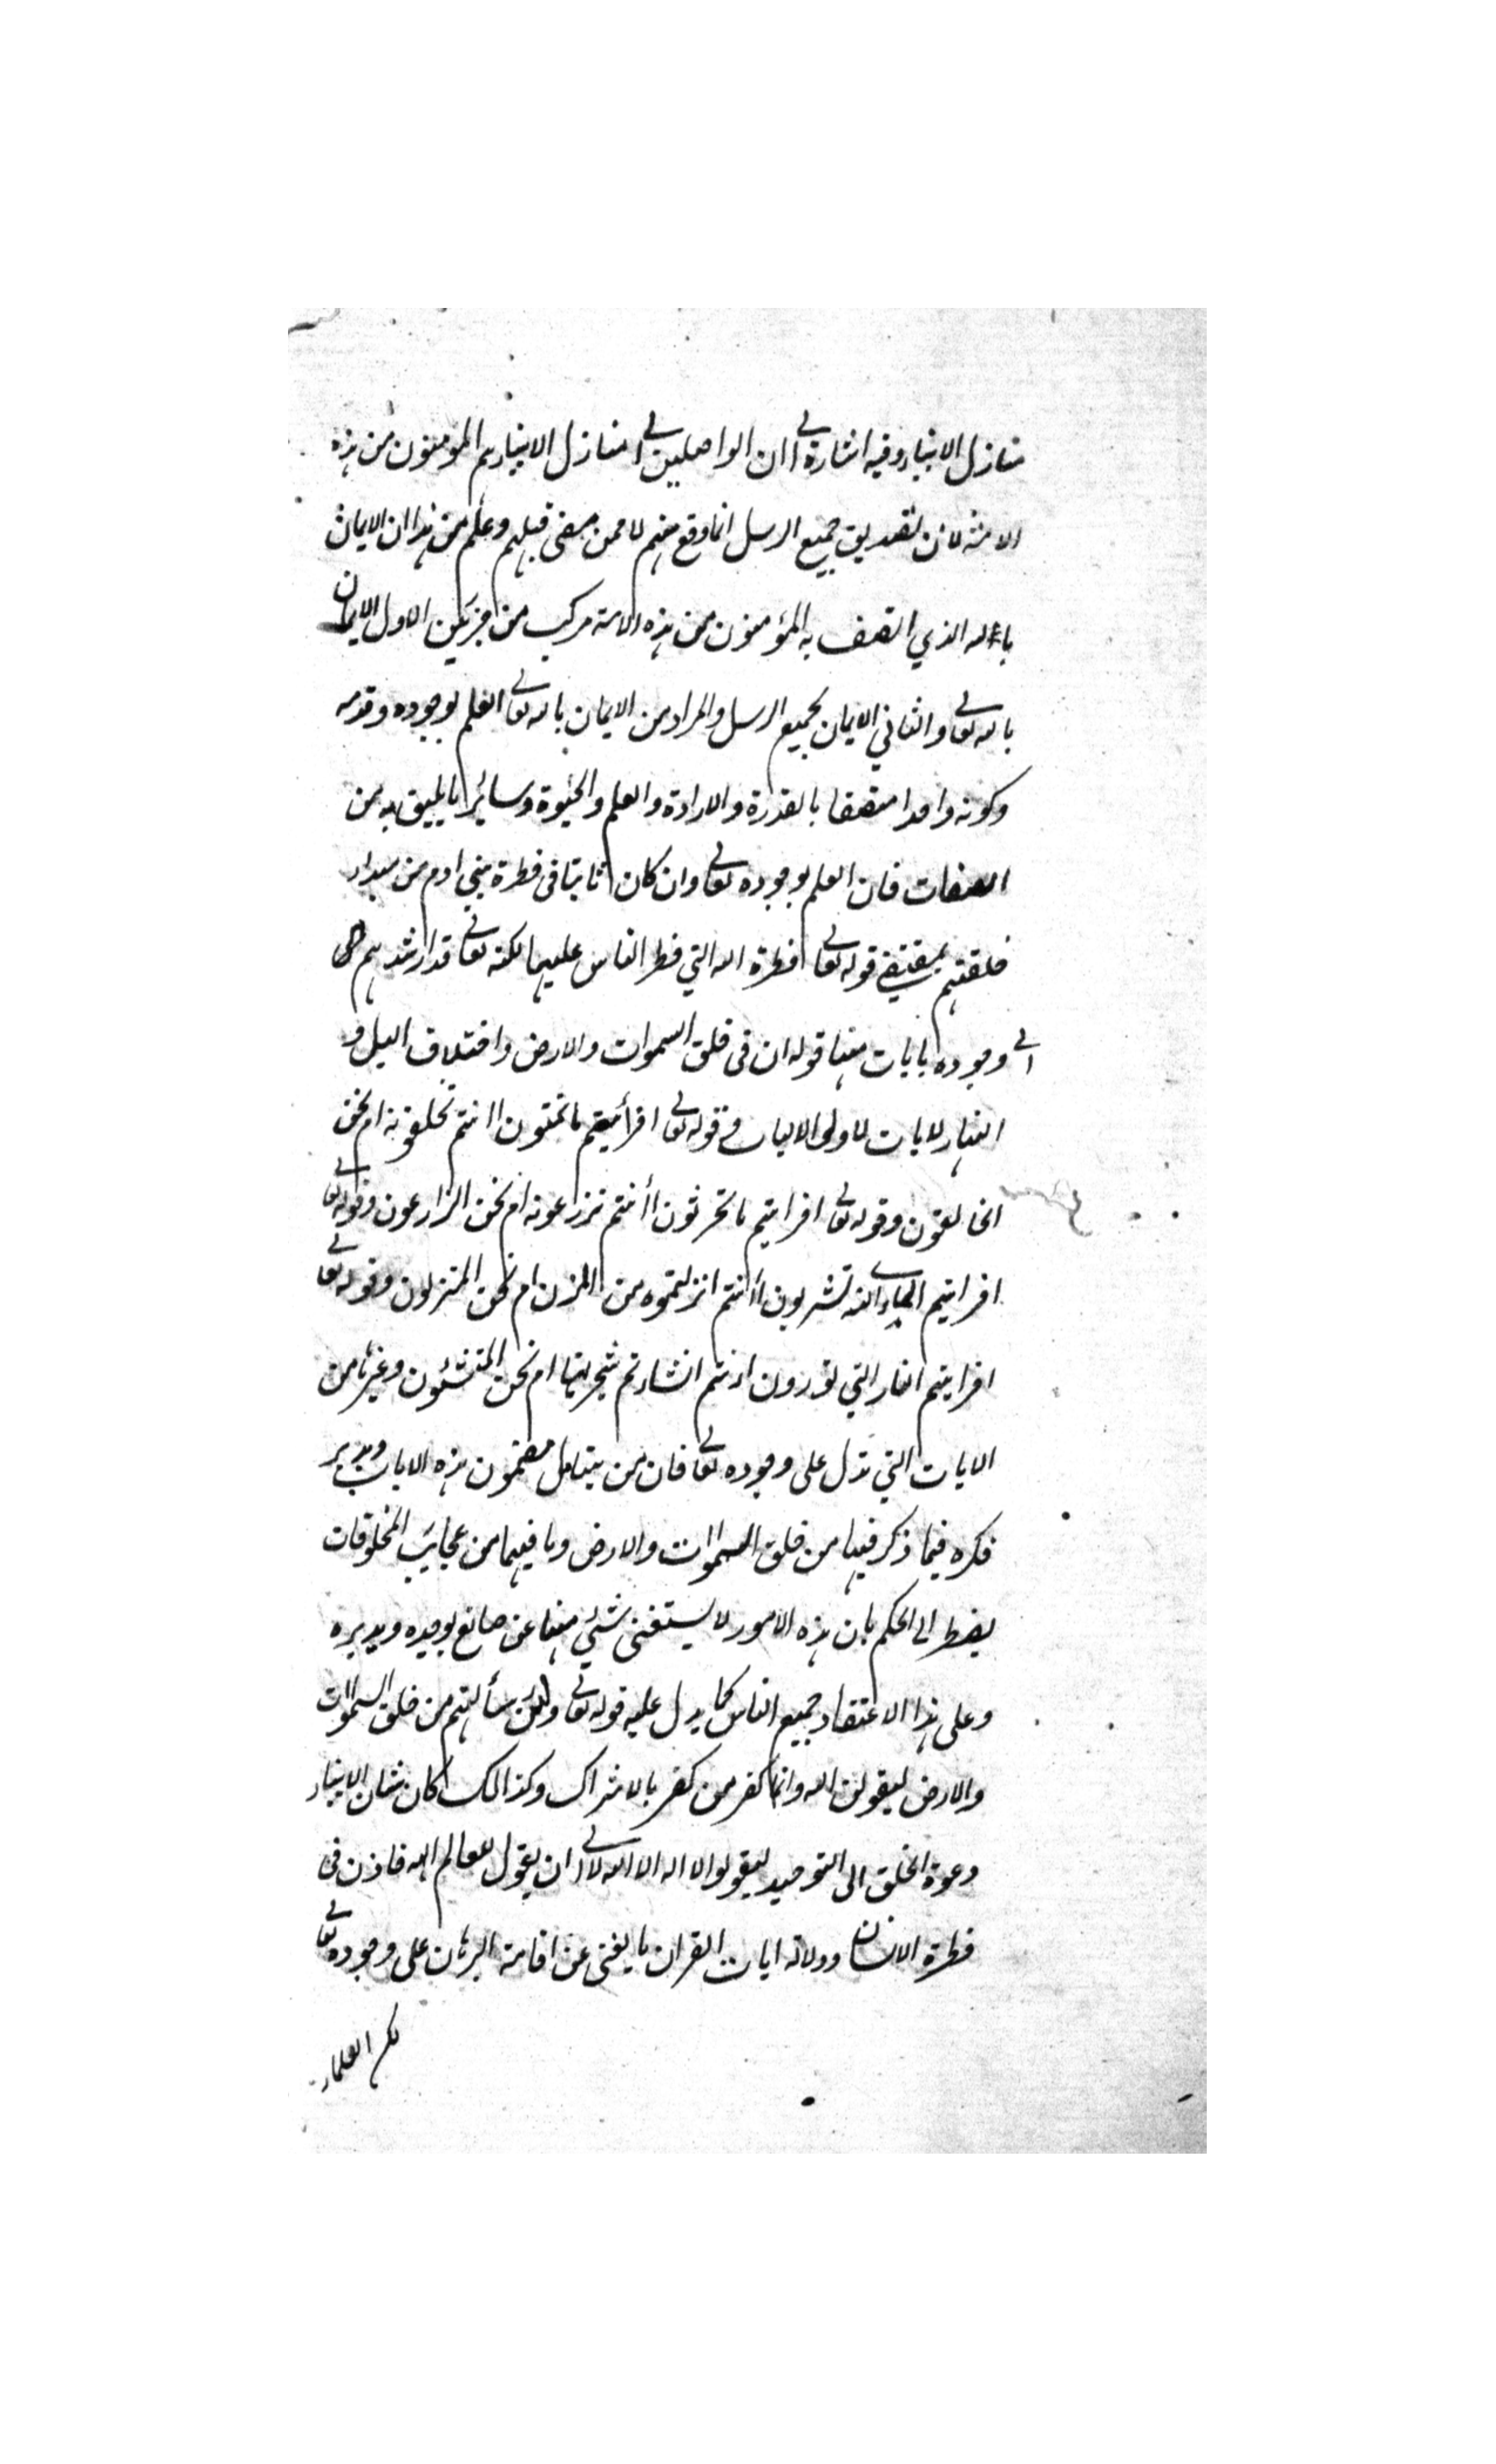 منازل الانبياء وفيه اشارة الى ان الواصلين الى منازل الانبياء هم المؤمنون من هذه
الامة لان تصديق جميع الرسل انما وقع منهم لا ممن مضى قبلهم وعلم من هذا ان الايمان
بالله الذي اتصف به المؤمنون من هذه الامة مركب من جزئين الاول الايمان
بالله تعالى والثاني الايمان بجميع الرسل والمراد من الايمان بالله تعالى العلم بوجوده وقدمه
وكونه واحدا متصفا بالقدرة والارادة والعلم والحيوة وسائر ما يليق به من
الصفات فان العلم بوجوده تعالى وان كان ثابتا في فطرة بني ادم من مبداء
خلقتهم بمقتضى قوله تعالى فطرة الله التي فطر الناس عليها لكنه تعالى قد ارشدهم
الى وجوده بايات منها قوله ان في خلق السموات والارض واختلاف اليل و
النهار لايات لاولى الالباب وقوله تعالى افرأيتم ما تمنون اانتم تخلقونه ام نحن
الخالقون وقوله تعالى افرايتم ما تحرثون أأنتم تزرعونه ام نحن الزارعون وقوله تعالى
افرايتم الماء الذي تشربون أأنتم انزلتموه من المزن ام نحن المنزلون وقوله تعالى
افرايتم النار التي تورون اءنتم انشاءتم شجرتها ام نحن المنشئون وغيرها من
الايات التي تدل على وجوده تعالى فان من يتامل مضمون هذه الايات ويدير
فكره فيما ذكر فيها من خلق السموات والارض وما فيهما من عجايب المخلوقات
يضطر الى الحكم بان هذه الامور لا يستغنى شئ منها عن صانع يوجده ويدبره
وعلى هذا الاعتقاد جميع الناس كما يدل عليه قوله تعالى ولئن سألتهم من خلق السموات
والارض ليقولن الله وانما كفر من كفر بالاشراك وكذالك كان شان الانبياء
دعوة الخلق الى التوحيد ليقولوا لا اله الا الله لا الى ان يقول للعالم اله فاذن في
فطرة الانسان ودلالة ايات القران ما يغنى عن اقامة البرهان على وجوده تعالى
لكن العلماء